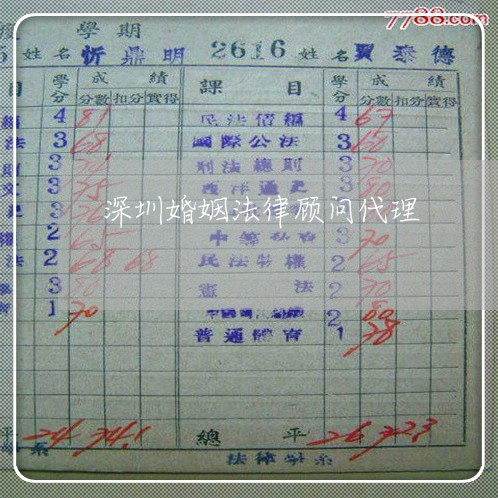 7788.com
度 學期
5 姓名 忻鼎明 2616 姓名 賈泰德
目 學分 成績 課目 學分 成績
分數 扣分 實得 分數 扣分 實得
4 81 民法債編 4 67
法 3 68 國際公法 3 60
3 刑法總則 3 70
3 75 西洋通史 3 80
深圳婚姻法律顾问代理
2 65 3 70
法 2 68 68 民法物權 2 65
3 80 憲法 2 70
1 70 2 80
普通體育 1 78
24 74.1 總平 26 72.3
系 法律學系